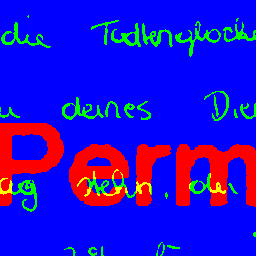 die Todtenglocke
u deines Dien
Perm
ag stehn, der